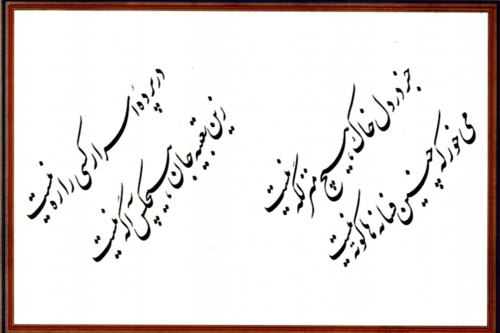 در پردهٔ اسرار کسی را ره نیست
زین تعبیه جان هیچکس آگه نیست
جز در دل خاک هیچ منزلگه نیست
می خور که چنین فسانه ها کوته نیست